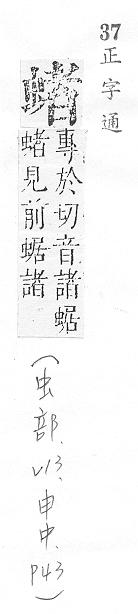 37 正字通
蝫
專於切音諸蜛
蝫見前蜛諸
(虫部、V13、申中、P43)